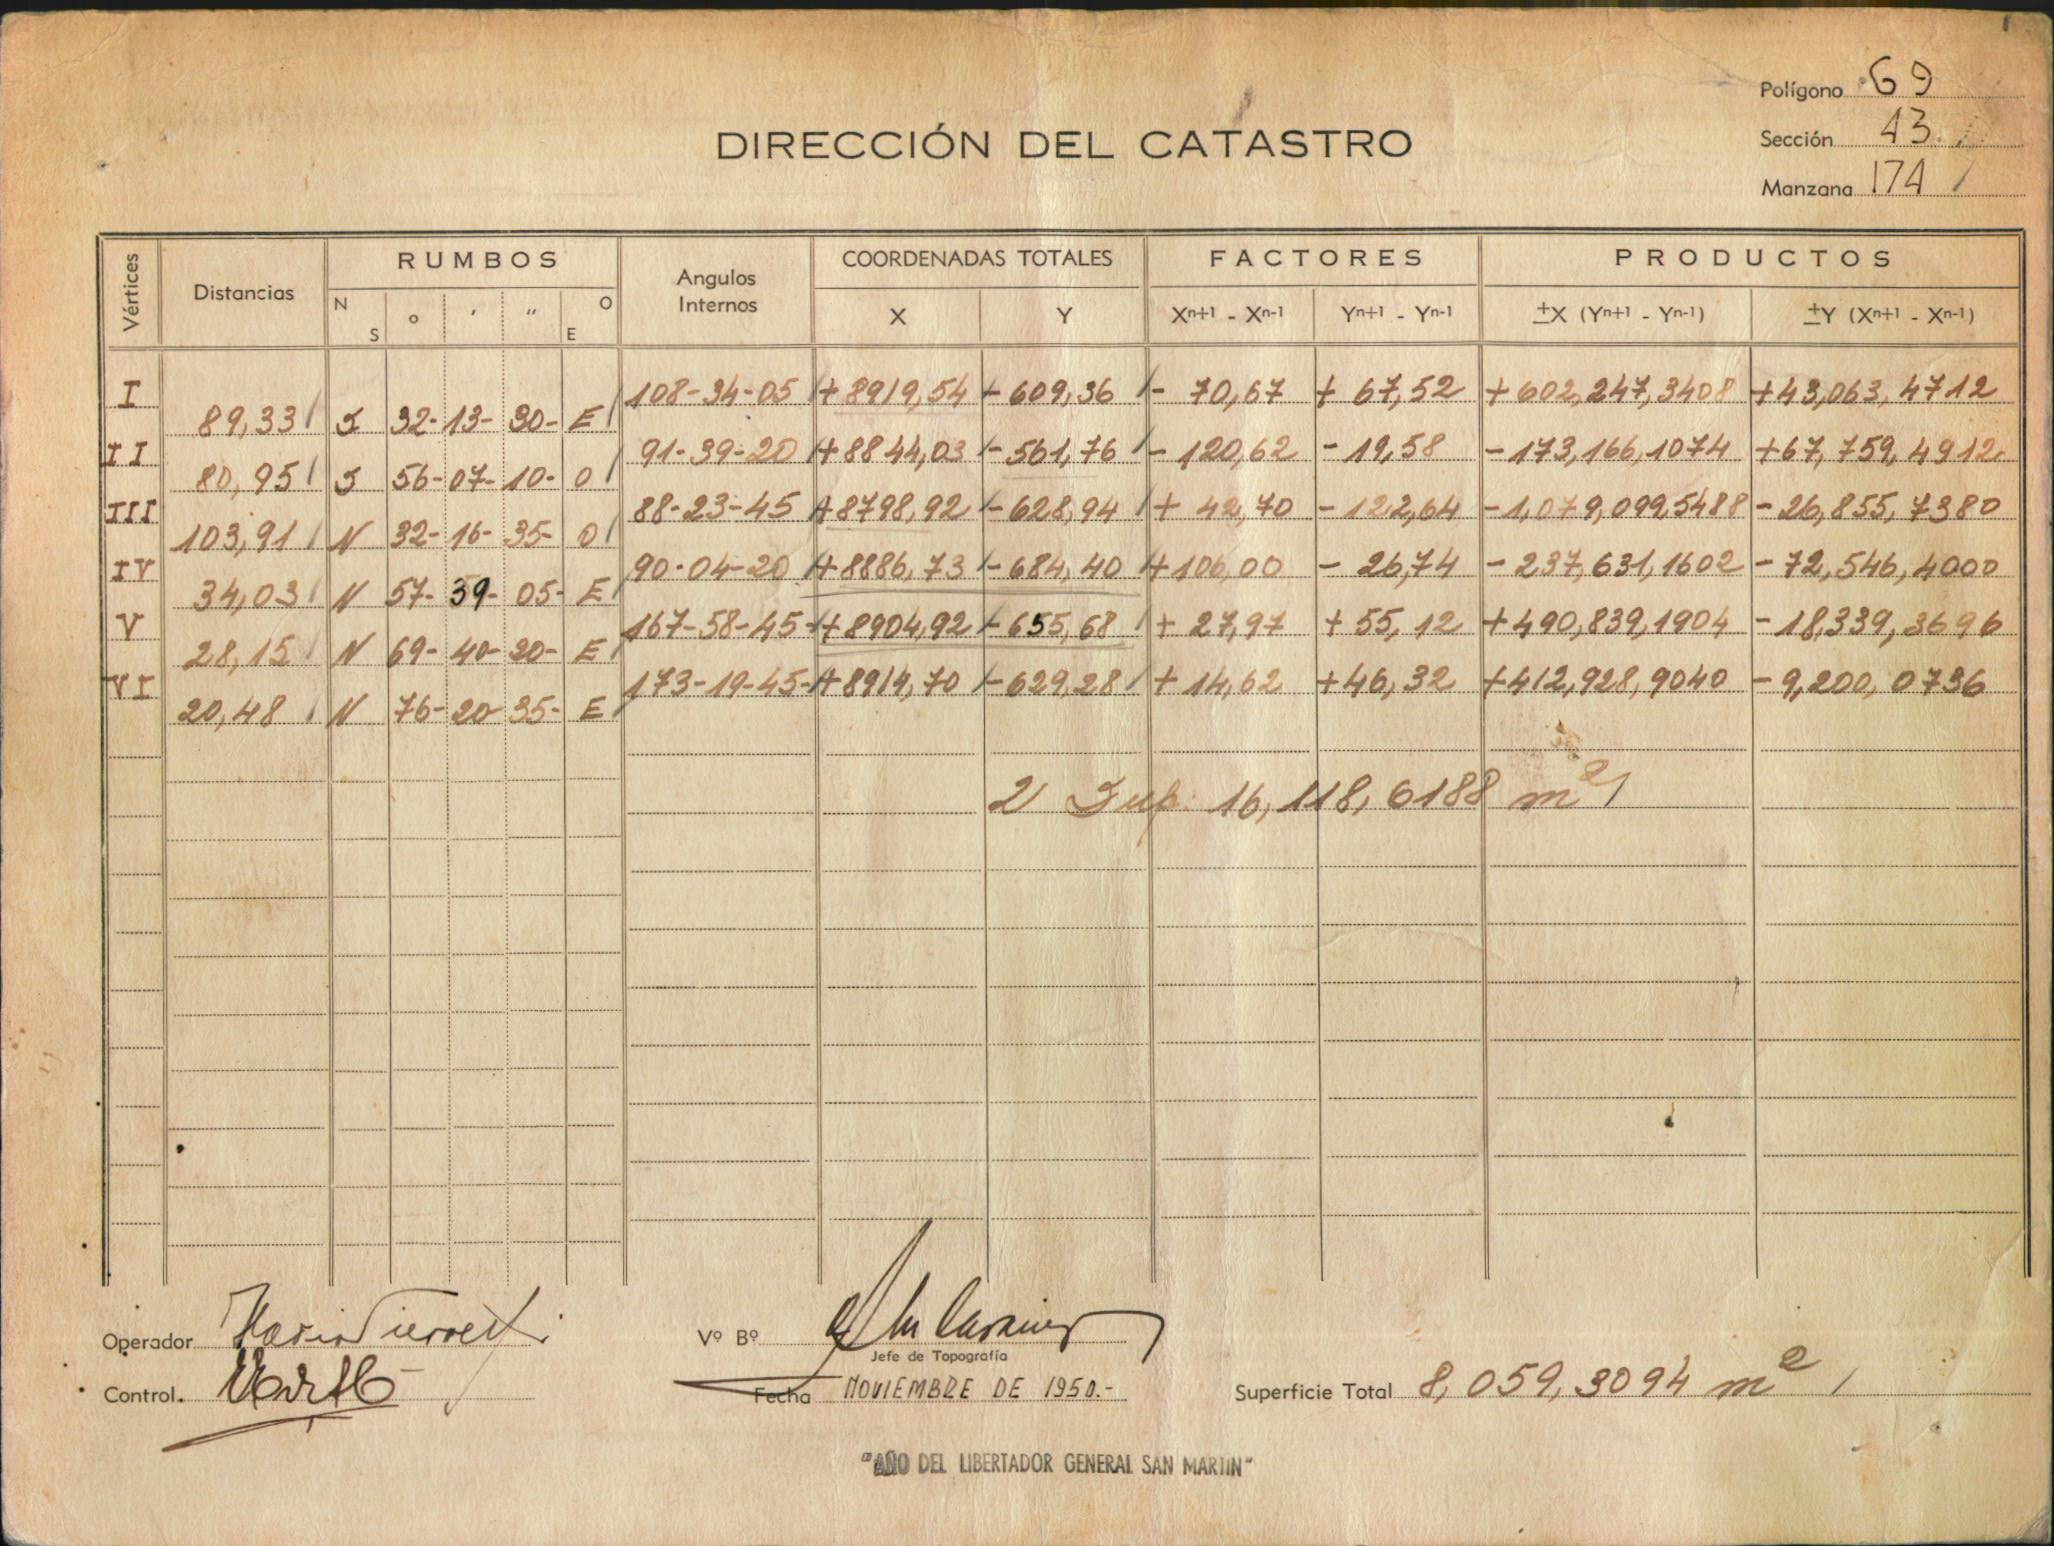 Polígono 69
DIRECCIÓN DEL CATASTRO
Sección 43.
Manzana 174
Vértices Distancias RUMBOS Angulos Internos COORDENADAS TOTALES FACTORES PRODUCTOS
N S ° ' " O E X Y Xn+1 - Xn-1 Yn+1 - Yn-1 ±X (Yn+1 - Yn-1) ±Y (Xn+1 - Xn-1)
I 108-34-05 +8919,54 -609,36 - 70,67 + 67,52 +602,247,3408 +43,063,4712
89,33 S 32-13-30- E
II 91-39-20 +8844,03 -561,76 -120,62 -19,58 -173,166,1074 +67,759,4912
80,95 S 56-07-10- O
III 88-23-45 +8798,92 -628,94 + 42,70 -122,64 -1,079,099,5488 -26,855,7380
103,91 N 32-16-35- O
IV 90-04-20 +8886,73 -684,40 +106,00 - 26,74 -237,631,1602 -72,546,4000
34,03 N 57-39-05- E
V 167-58-45- +8904,92 -655,68 + 27,97 +55,12 +490,839,1904 -18,339,3696
28,15 N 69-40-20- E
VI 173-19-45- +8914,70 -629,28 + 14,62 +46,32 +412,928,9040 -9,200,0736
20,48 N 76-20-35- E
2 Sup. 16,118,6188 m2
Operador
Vº Bº
Jefe de Topografía
Control.
Fecha NOVIEMBRE DE 1950.-
Superficie Total 8,059,3094 m2
"AÑO DEL LIBERTADOR GENERAL SAN MARTIN"